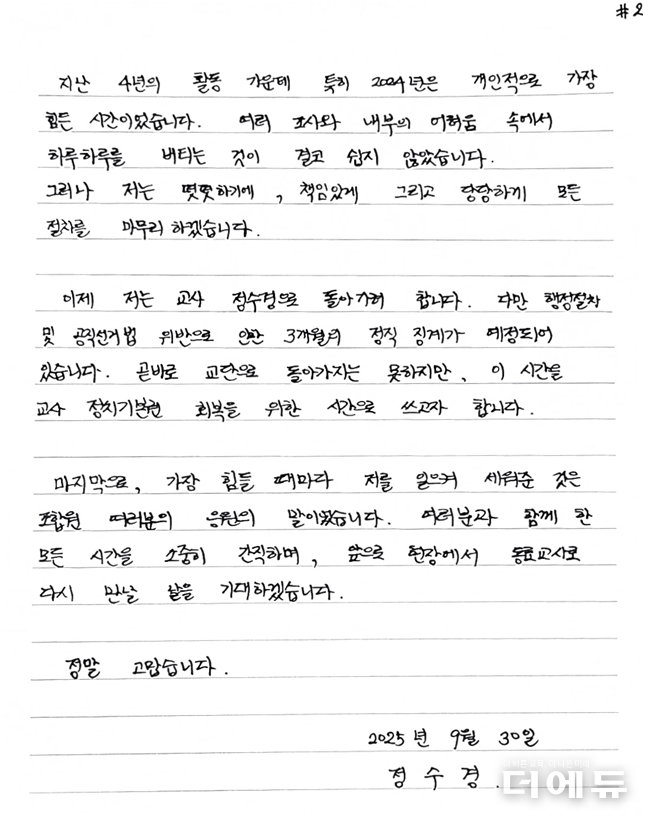 #2
지난 4년의 활동 가운데 특히 2024년은 개인적으로 가장
힘든 시간이었습니다. 여러 조사와 내부의 어려움 속에서
하루하루를 버티는 것이 결코 쉽지 않았습니다.
그러나 저는 떳떳하기에, 책임있게 그리고 당당하게 모든
절차를 마무리 하겠습니다.
이제 저는 교사 정수경으로 돌아가려 합니다. 다만 행정절차
및 공직선거법 위반으로 인한 3개월의 정직 징계가 예정되어
있습니다. 곧바로 교단으로 돌아가지는 못하지만, 이 시간을
교사 정치기본권 회복을 위한 시간으로 쓰고자 합니다.
마지막으로, 가장 힘들 때마다 저를 일으켜 세워준 것은
조합원 여러분의 응원의 말이었습니다. 여러분과 함께 한
모든 시간을 소중히 간직하며, 앞으로 현장에서 동료교사로
다시 만날 날을 기대하겠습니다.
정말 고맙습니다.
2025년 9월 30일
정수경.
더에듀